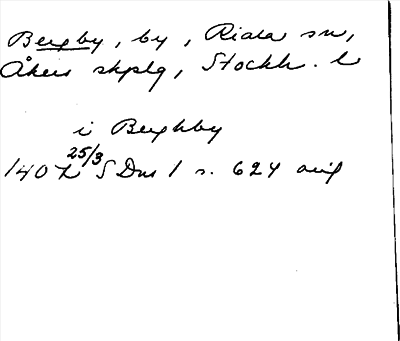 Bergby, by, Riala sn,
Åkers skplg, Stockh. l
i Berghby
1407 25/3 SDns 1 s. 624 orig